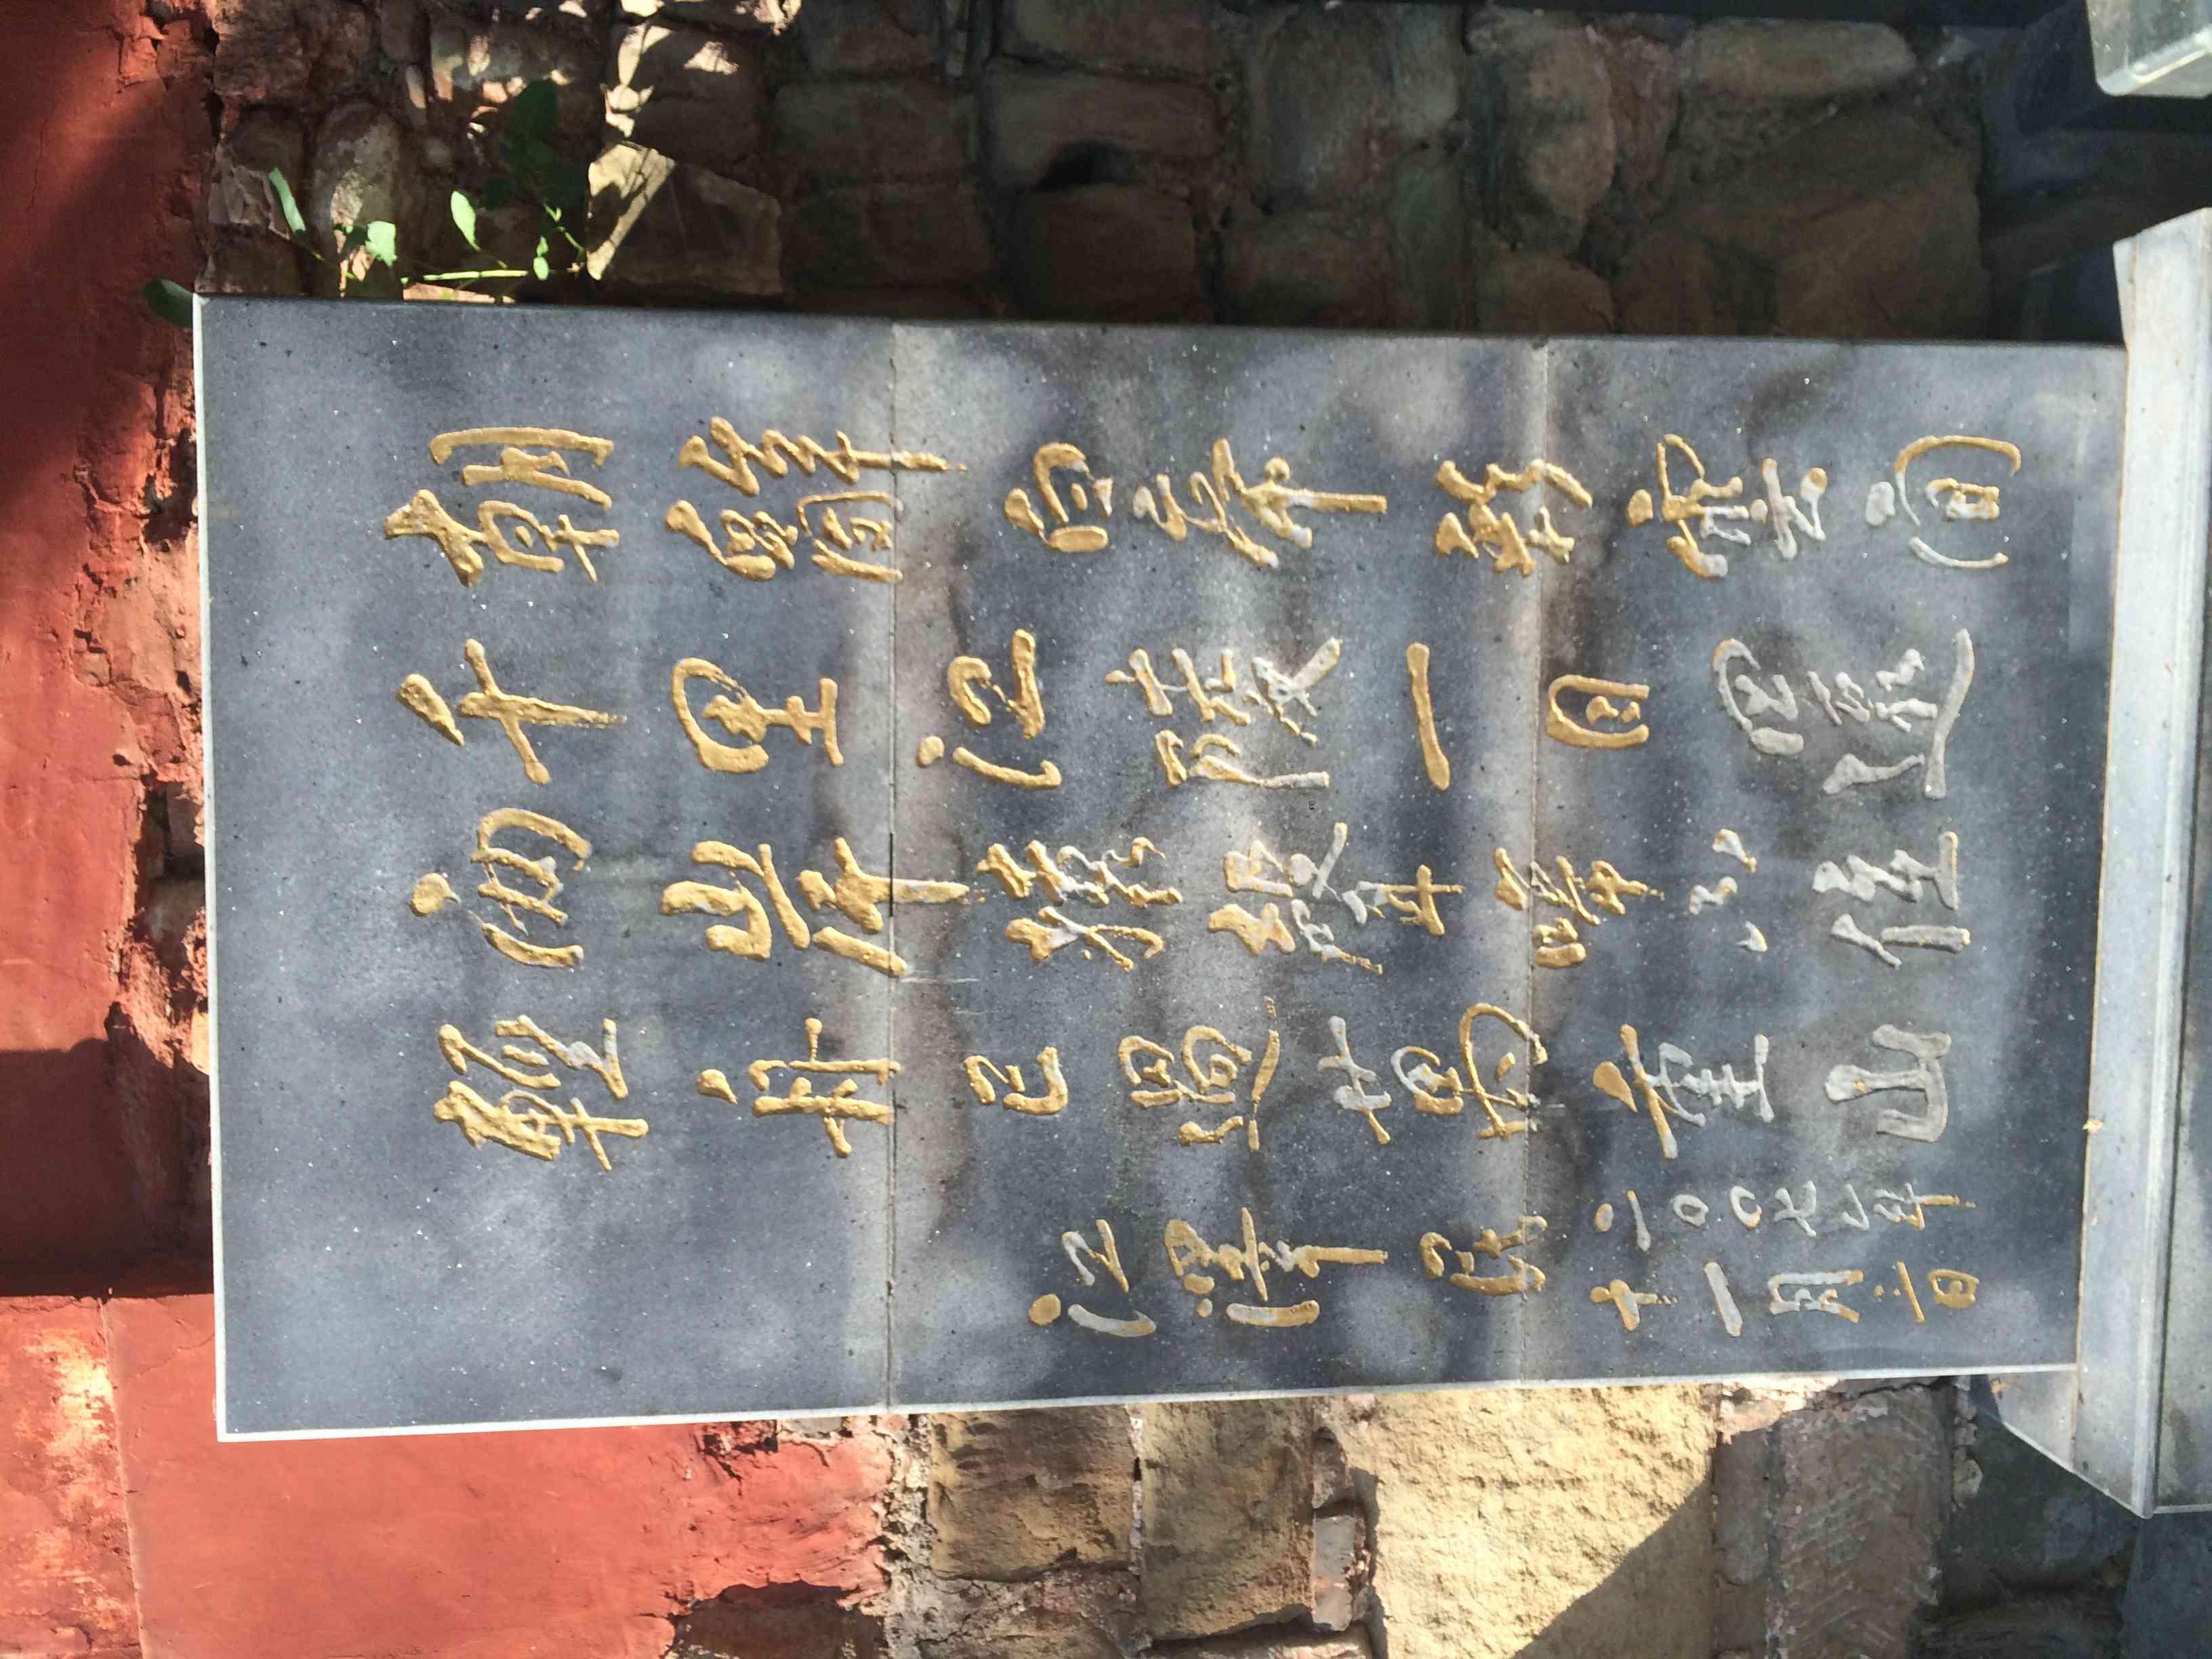 朝辭白帝彩雲間
千里江陵一日回還
兩岸猿聲啼不住
輕舟已過萬重山
江澤民
二〇〇七年
十一月二日